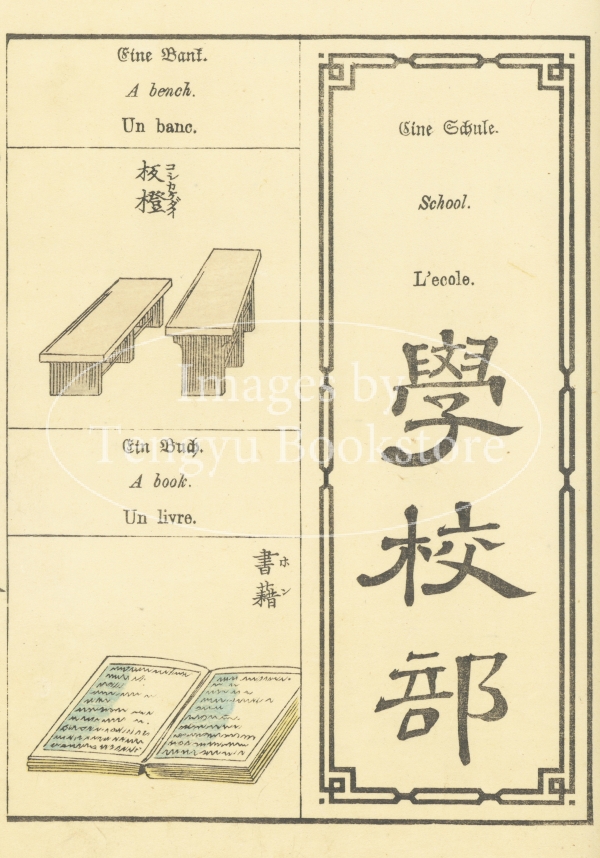 Eine Schule.
School.
L'ecole.
學校部
Eine Bank.
A bench.
Un banc.
板橙
コシカケダイ
Ein Buch.
A book.
Un livre.
書藉
ホン
Images by
Tengyu Bookstore